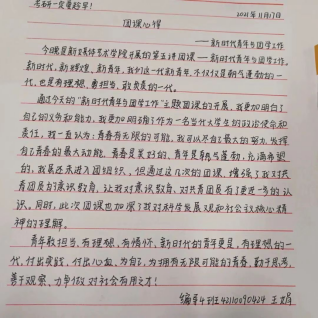 考研一定要趁早!
2021年11月17日
团课心得
——新时代青年与团学工作
今晚是新媒体艺术学院开展的第五讲团课——新时代青年与团学工作。
新时代,新理想,新青年,我们这一代新青年,不仅仅是朝气蓬勃的一
代,也是有理想、有担当、敢负责的一代。
通过今天的“新时代青年与团学工作”主题团课的开展,我更加明白了
自己的义务和能力,我更加明确了作为一名当代大学生的政治使命和
责任,我一直认为:青春有无限的可能,我可以尽自己最大的努力,发挥
自己青春的最大动能。青春是美好的,青年是朝气蓬勃,充满希望
的,我虽还未进入团组织,但通过这几次的团课,增强了我对共
青团员的意识教育,让我对意识教育、对共青团员有了更进一步的认
识,同时,此次团课也加深了我对科学发展观和社会主义核心精
神的理解。
青年敢担当,有理想,有情怀,新时代的青年更是,有理想的一
代,付出实践,付出心血,为自己,为拥有无限可能的青春,勤于思考,
善于观察,力争做对社会有用之才!
编导4班42110090424 王娟